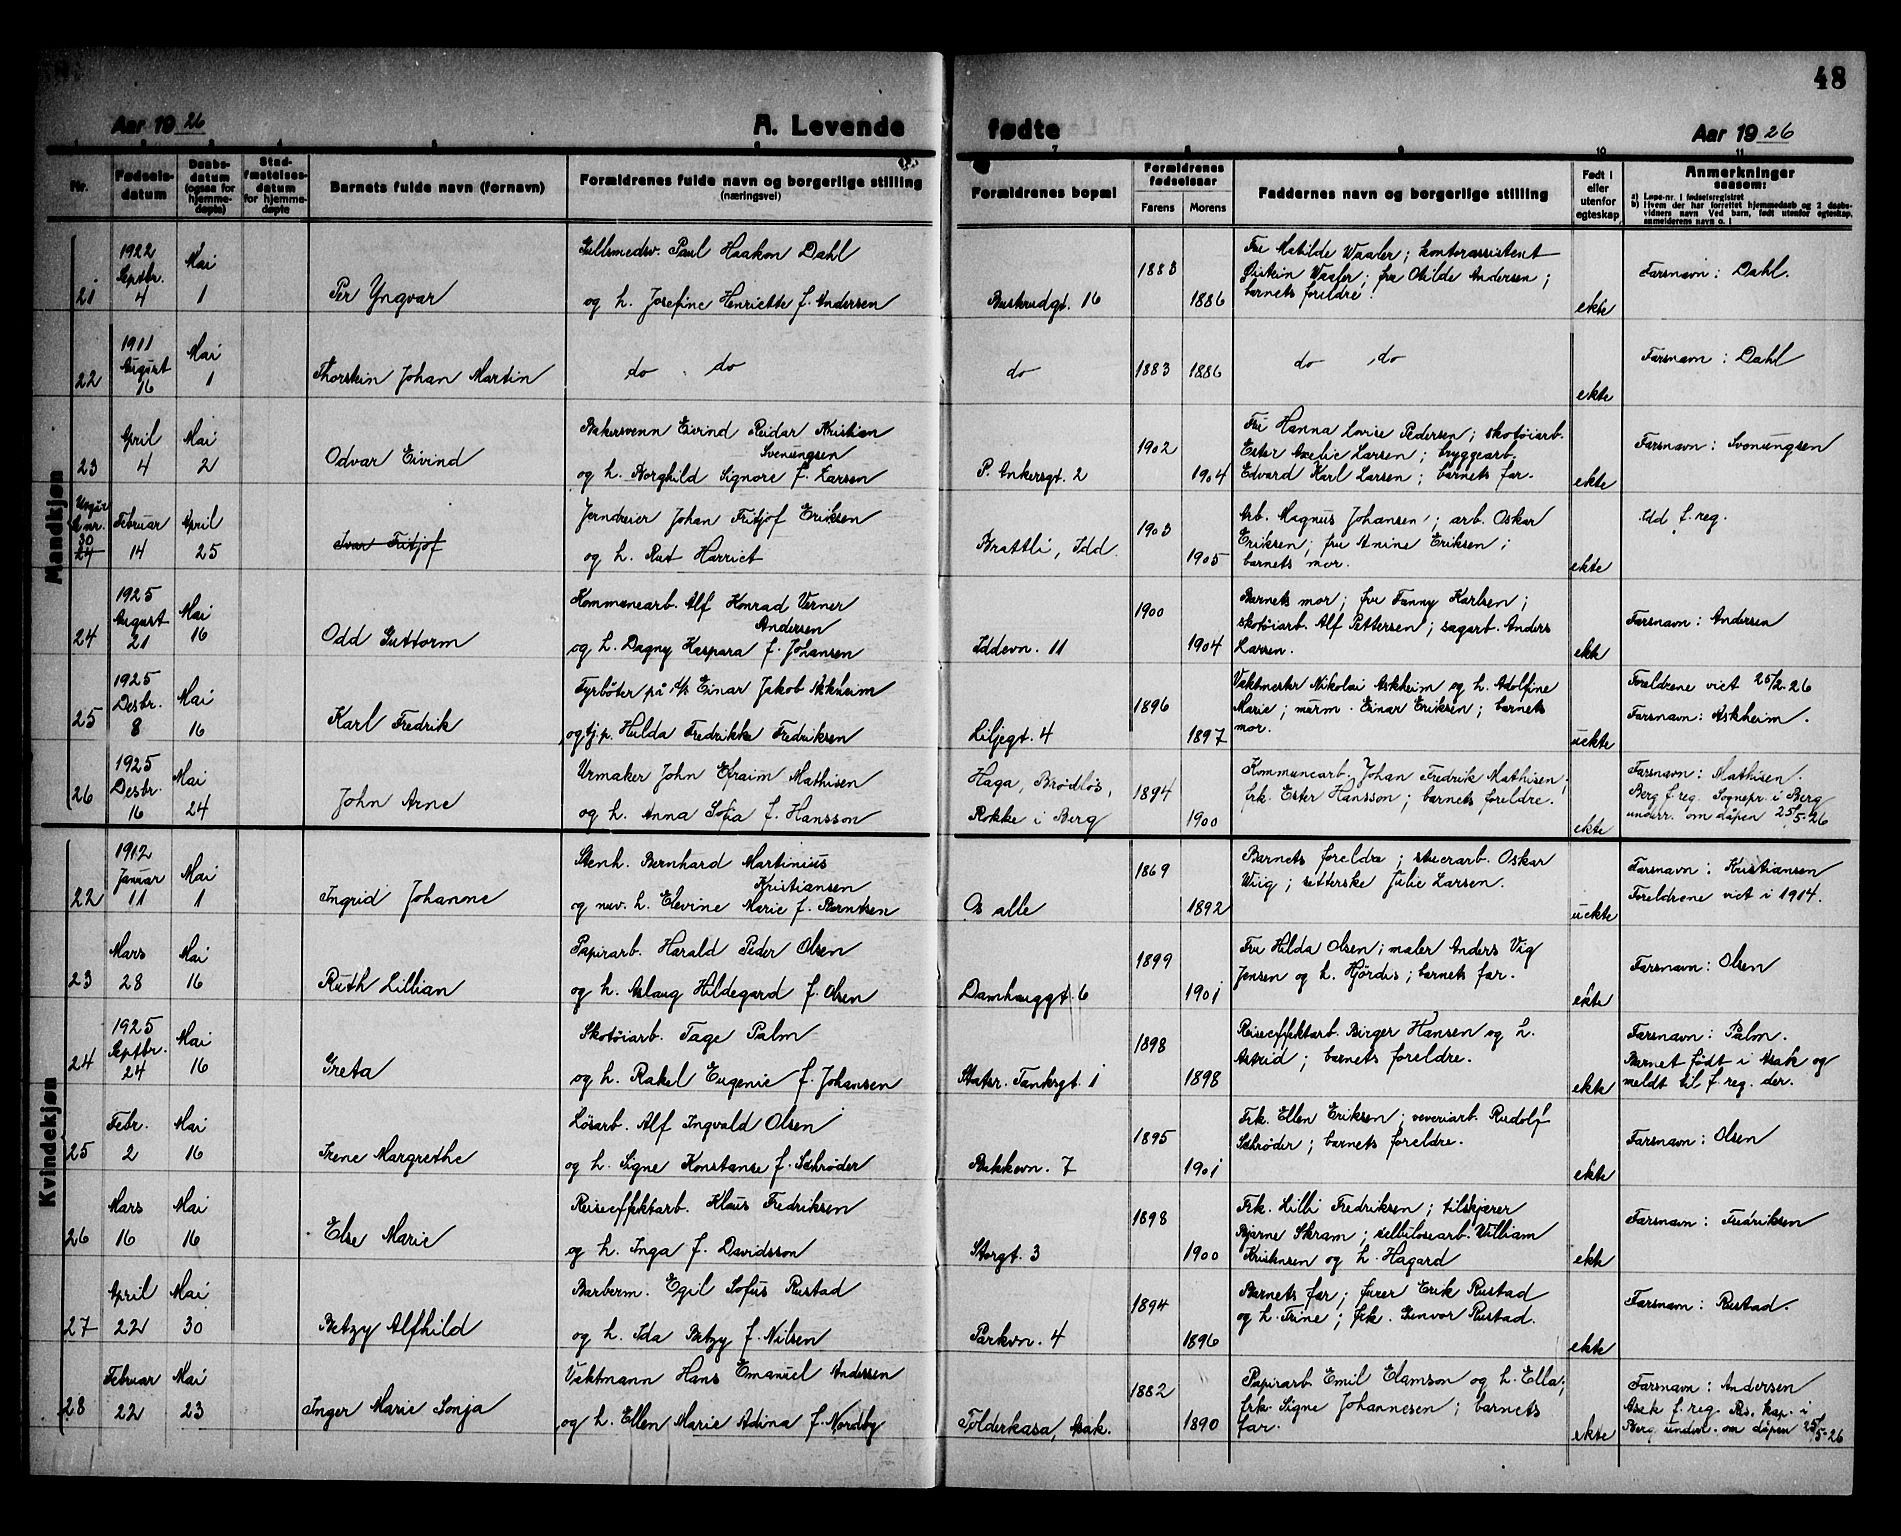 48
Aar 1926 A. Levende fødte Aar 1926
Nr.
Fødselsdatum
Daabsdatum (ogsaa for hjemmedøpte)
Stadfæstelsesdatum for hjemmedøpte
Barnets fulde navn (fornavn)
Forældrenes fulde navn og borgerlige stilling
(næringsvei)
Forældrenes bopæl
Forældrenes fødselsaar
Farens Morens
Faddernes navn og borgerlige stilling
Født i eller utenfor egteskap
Anmerkninger
saasom:
a) Løpe-nr. i fødselsregistret
b) Hvem der har forrettet hjemmedaab og 2 daabsvidners navn Ved barn, født utenfor egteskap, anmelderens navn o. l
Mandkjøn
21
1922
Septbr.
4
Mai
1
Per Yngvar
Gullsmedsv. Paul Haakon Dahl
og h. Josefine Henriette f. Andersen
Buskrudgt. 16
1883
1886
Fru Matilde Waaler; kontorassistent
Øistein Waaler; fru Otilde Andersen;
barnets foreldre.
ekte
Farsnavn: Dahl.
22
1911
August
16
Mai
1
Thorstein Johan Martin
do do
do
1883 1886
do do
ekte
Farsnavn: Dahl
23
April
4
Mai
2
Odvar Eivind
Bakersvenn Eivind Reidar Kristian
Svenungsen
og h. Borghild Signore f. Larsen
P. Ankersgt. 2
1902
1904
Fru Hanna Lovise Pedersen; skotøiarb.
Ester Axelie Larsen; bryggearb.
Edvard Karl Larsen; barnets far.
ekte
Farsnavn: Svenungsen
Utgår
nr.
30
24
Februar
14
April
25
Ivar Fritjof
Jerndreier Johan Fritjof Eriksen
og h. Rut Harriet
Brattli, Idd.
1903
1905
Arb. Magnus Johansen; arb. Oskar
Eriksen; fru Anine Eriksen;
barnets mor.
ekte
Idd f. reg.
24
1925
August
21
Mai
16
Odd Guttorm
Kommunearb. Alf Konrad Verner
Andersen
og h. Dagny Kaspara f. Johansen
Iddevn. 11
1900
1904
Barnets mor; fru Fanny Karlsen;
skotøiarb. Alf Pettersen; sagarb. Anders
Larsen.
ekte
Farsnavn: Andersen
25
1925
Desbr.
8
Mai
16
Karl Fredrik
Fyrbøter på Einar Jakob Askheim
og tj.p. Hulda Fredrikke Fredriksen
Liljegt. 4
1896
1897
Vaktmester Nikolai Askheim og h. Adolfine
Marie; mürm. Einar Eriksen; barnets
mor.
uekte
Foreldrene viet 25/2-26
Farsnavn: Askheim.
26
1925
Desbr.
16
Mai
24
John Arne
Urmaker John Efraim Mathisen
og h. Anna Sofia f. Hansson
Haga, Brødløs,
Rokke i Berg
1894
1900
Kommunearb. Johan Fredrik Mathisen;
frk. Ester Hansson; barnets foreldre.
ekte
Farsnavn: Mathisen.
Berg f. reg. Sognepr. i Berg
underr. om dåpen 25/5-26
Kvindekjøn
22
1912
Januar
11
Mai
1
Ingrid Johanne
Stenh. Bernhard Martinius
Kristiansen
og nuv. h. Elevine Marie f. Berntsen
Os alle
1869
1892
Barnets foreldre; stuerarb. Oskar
Wiig; setterske Julie Larsen.
uekte
Farsnavn: Kristiansen
Foreldrene viet i 1914.
23
Mars
28
Mai
16
Ruth Lillian
Papirarb. Harald Peder Olsen
og h. Aslaug Hildegard f. Olsen
Damhauggt. 6
1899
1901
Fru Hilda Olsen; maler Anders Vig
Jensen og h. Hjørdis; barnets far.
ekte
Farsnavn: Olsen
24
1925
Septbr.
24
Mai
16
Greta
Skotøiarb. Tage Palm
og h. Rakel Eugenie f. Johansen
Statsr. Tanksgt. 1
1898
1898
Reiseeffektarb. Birger Hansen og h.
Astrid; barnets foreldre.
ekte
Farsnavn: Palm.
Barnet født i Asak og
meldt til f. reg. der.
25
Febr.
2
Mai
16
Irene Margrethe
Løsarb. Alf Ingvald Olsen
og h. Signe Konstanse f. Schrøder
Bakkevn. 7
1895
1901
Frk. Ellen Eriksen; veveriarb. Rudolf
Schrøder; barnets foreldre.
ekte
Farsnavn: Olsen
26
Mars
16
Mai
16
Else Marie
Reiseeffektarb. Klaus Fredriksen
og h. Inga f. Davidsson
Storgt. 3
1898
1900
Frk. Lilli Fredriksen; tilskjærer
Bjarne Skram; cellulosearb. William
Kristensen og h. Hagard
ekte
Farsnavn: Fredriksen
27
April
22
Mai
30
Betzy Alfhild
Barberm. Egil Sofus Rustad
og h. Ida Betzy f. Nilsen
Parkvn. 4
1894
1896
Barnets far; furer Erik Rustad
og h. Trine; frk. Gunvor Rustad.
ekte
Farsnavn: Rustad.
28
Februar
22
Mai
23
Inger Marie Sonja
Vaktmann Hans Emanuel Andersen
og h. Ellen Marie Adina f. Nordby
Tolderkasa, Asak.
1882
1890
Papirarb. Emil Elamson og h. Ella;
frk. Signe Johannesen; barnets
far.
ekte
Farsnavn: Andersen
Asak f. reg. Res. kap. i
Berg underr. om dåpen 25/5-26